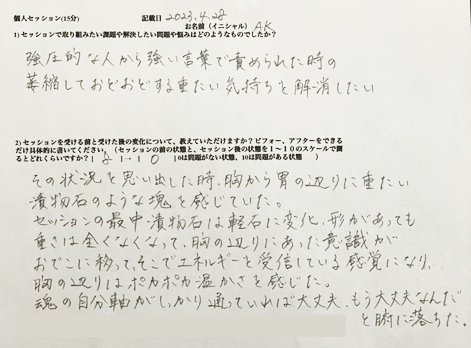 個人セッション(15分) 記載日 2023.4.28
お名前(イニシャル) AK
1) セッションで取り組みたい課題や解決したい問題や悩みはどのようなものでしたか?
強圧的な人から強い言葉で責められた時の
萎縮しておどおどする重たい気持ちを解消したい
2) セッションを受ける前と受けた後の変化について、教えていただけますか?ビフォー、アフターをできる
だけ具体的に書いてください。(セッションの前の状態と、セッション後の状態を1~10のスケールで測
るとどれくらいですか? 8 1→1 0 )0は問題がない状態、10は問題がある状態)
その状況を思い出した時、胸から胃の辺りに重たい
漬物石のような塊を感じていた。
セッションの最中漬物石は軽石に変化、形があっても
重さは全くなくなって、胸の辺りにあった意識が
おでこに移って、そこでエネルギーを受信している感覚になり、
胸の辺りはポカポカ温かさを感じた。
魂の自分軸がしっかり通っていれば大丈夫、もう大丈夫なんだ
と腑に落ちた。